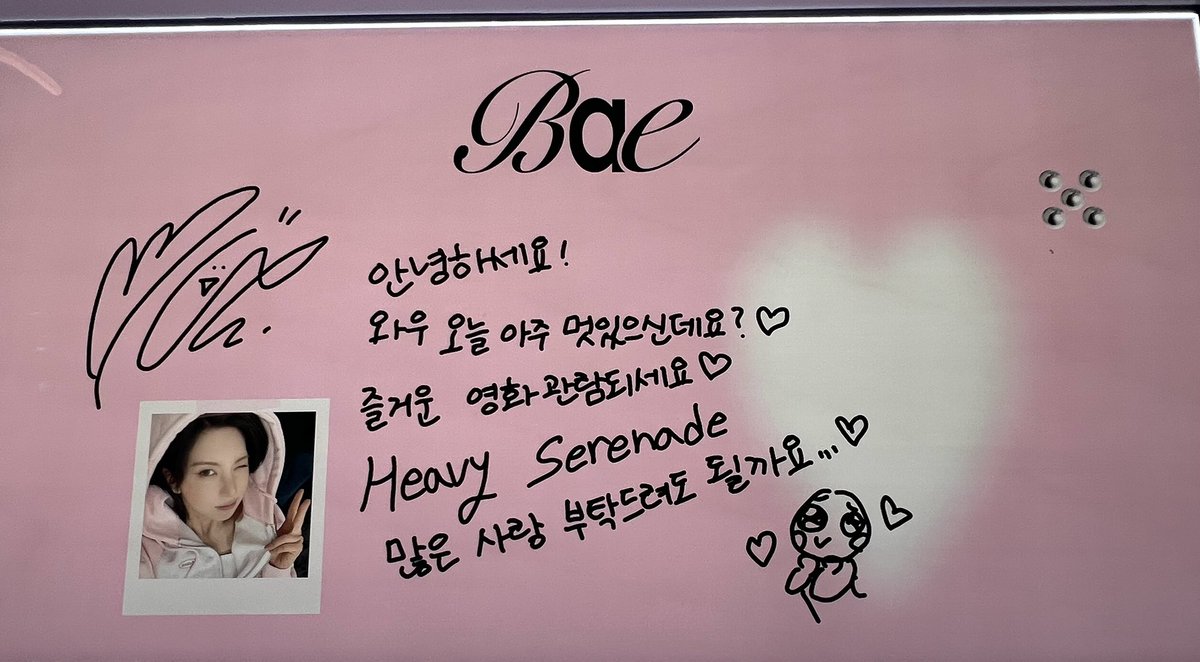 Bae
안녕하세요!
와우 오늘 아주 멋있으신데요?♡
즐거운 영화관람되세요♡
Heavy Serenade
많은 사랑 부탁드려도 될까요...♡